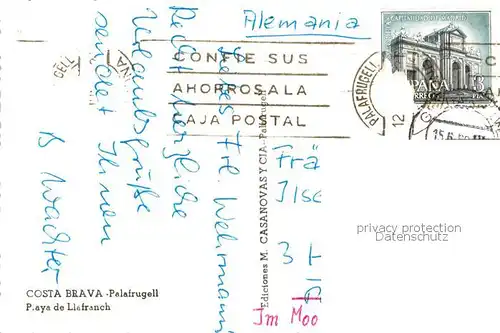 Alemania
CAPITALIDAD DE MADRID
CORREOS
PALAFRUGELL
12
CONFIE SUS
AHORROS A LA
CAJA POSTAL
Liebes Frl. Wehrmann
Recht herzliche
Urlaubsgrüße
sendet Ihnen
B Wachter
Ediciones M. CASANOVAS Y CIA - Palafrugell
Frä
Ilse
3 t
Im Moo
privacy protection
Datenschutz
COSTA BRAVA - Palafrugell
Playa de Llafranch